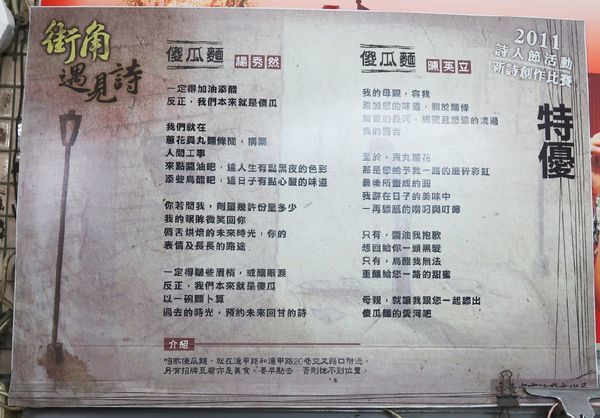 街角
遇見詩
2011
詩人節活動
新詩創作比賽
特優
傻瓜麵 楊秀然
一定得加油添醋
反正，我們本來就是傻瓜
我們就在
蔥花貢丸麵條間，構築
人間工事
來點醬油吧，這人生有點黑夜的色彩
添些烏醋吧，這日子有點心酸的味道
你若問我，劑量幾許份量多少
我的眼眸微笑回你
唇舌烘焙的未來時光，你的
表情及長長的路途
一定得皺些眉梢，或釀眼淚
反正，我們本來就是傻瓜
以一碗麵卜算
過去的時光，預約未來回甘的詩
傻瓜麵 陳英立
我的母親，容我
添加您的味道，關於麵條
如愛的長河，綿密且悠遠的流過
我的唇舌
至於，貢丸蔥花
那是您給予我一路的細碎彩虹
最後所豐成的圓
我游在日子的美味中
一再舔舐的嘮叨與叮嚀
只有，醬油我抱歉
想回給你一頭黑髮
只有，烏醋我無法
重釀給您一路的甜蜜
母親，就讓我跟您一起舔出
傻瓜麵的愛河吧
介紹
咱家傻瓜麵，就在逢甲路和逢甲路20巷交叉路口附近。
另有招牌豆腐亦是美食。要早點去，否則排不到位置。